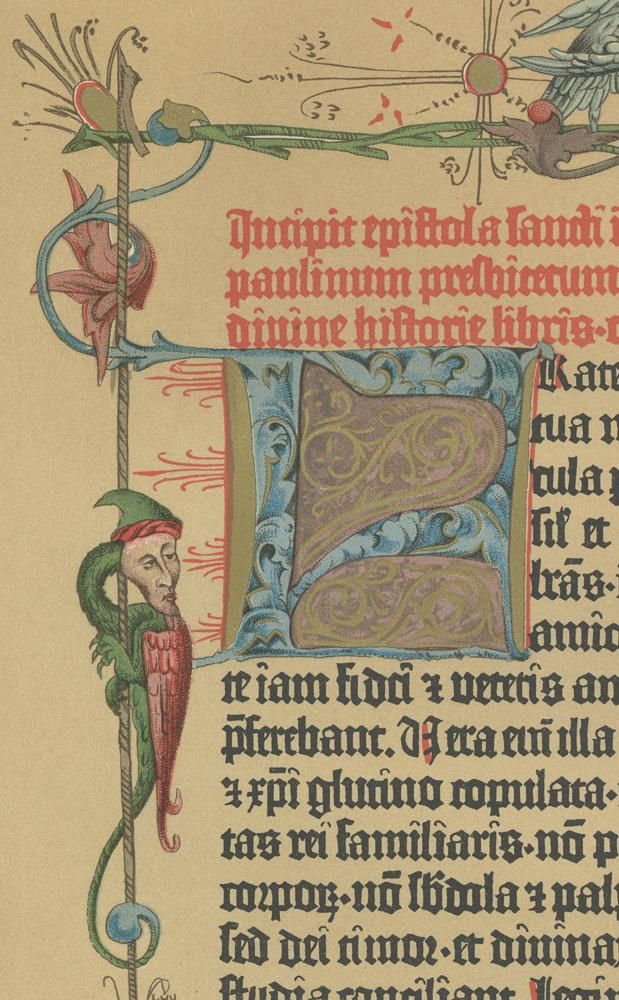 Incipit epistola sancti i
paulinum presbiterum
divine historie libris·
FRate
tua
tula
sil' et
lr̄as·
amic
te iam fidei ⁊ veteris am
p̄ferebant. Vera em̄ illa
⁊ xp̄i glutino copulata·
tas rei familiaris·nō p
corpoꝝ·nō sb̄dola ⁊ palp
sed dei timor·et divinar
studia conciliant. Legim